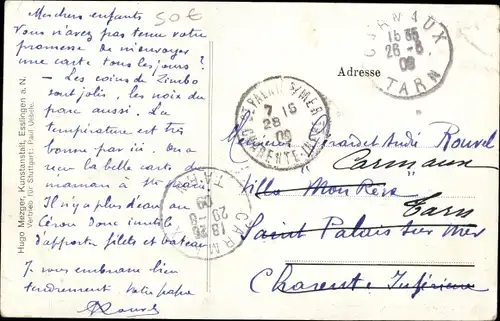 Mes chers enfants
50€
Vous n'avez pas tenu votre
promesse de m'envoyer
une carte tous les jours ?
— Les coins de Zimbo
sont jolis, les noix du
parc aussi. La
température est très
bonne par ici. On a
recu la belle carte de
maman à
Il n'y a plus d'eau au
Cérou donc inutile
d'apporter filets et bateau
Je vous embrasse bien
tendrement votre papa
Hugo Mezger, Kunstanstalt, Esslingen a. N.
Vertrieb für Stuttgart: Paul
CARMAUX
15 35
26 -8
09
TARN
Adresse
St PALAIS S/MER
7 15
28
09
CHARENTE-INF
CARM
18 25
20 -8
09
TARN
Monsieur Gérard et André Rouvel
Carmaux
Villa Mon Rêve
Tarn
Saint Palais sur Mer
Charente Inférieure